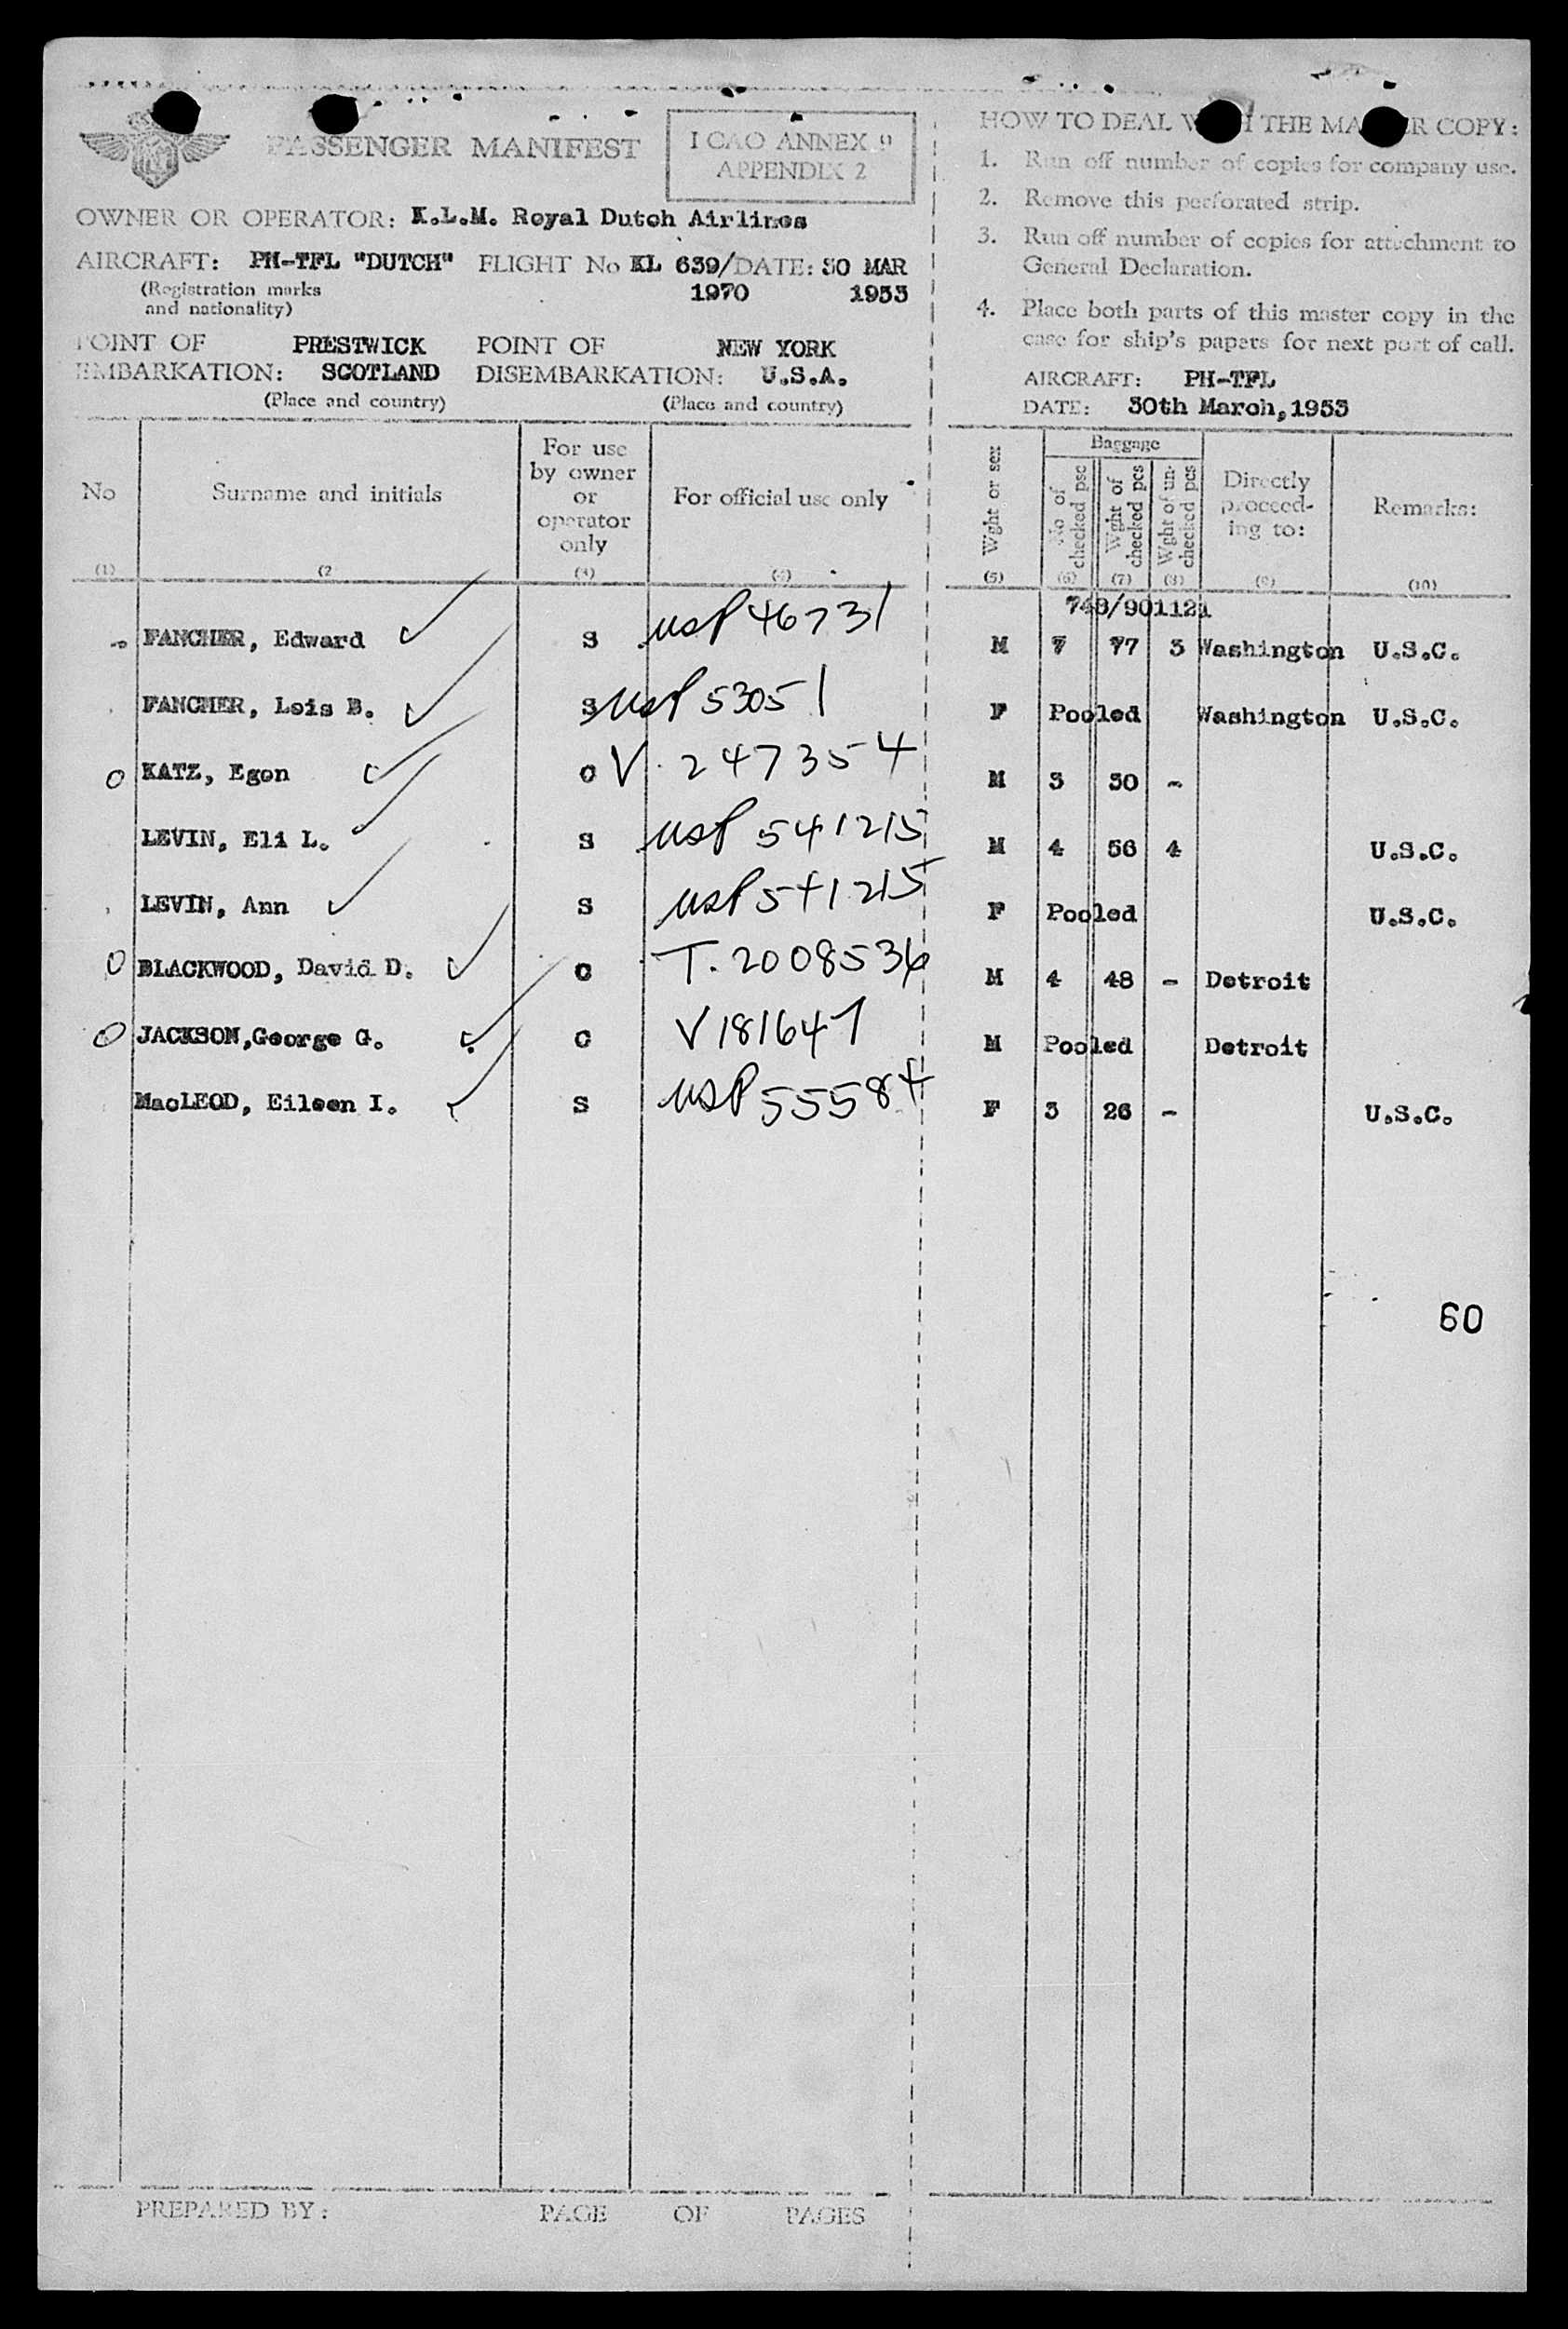 PASSENGER MANIFEST
I CAO ANNEX 9
APPENDIX 2
OWNER OR OPERATOR: K.L.M. Royal Dutch Airlines
AIRCRAFT: PH-TFL "DUTCH" FLIGHT No KL 639/ DATE: 30 MAR
(Registration marks 1970 1953
and nationality)
POINT OF PRESTWICK POINT OF NEW YORK
EMBARKATION: SCOTLAND DISEMBARKATION: U.S.A.
(Place and country) (Place and country)
HOW TO DEAL THE COPY:
1. Run off number of copies for company use.
2. Remove this perforated strip.
3. Run off number of copies for attachment to
General Declaration.
4. Place both parts of this master copy in the
case for ship's papers for next port of call.
AIRCRAFT: PH-TFL
DATE: 30th March, 1953
No Surname and initials For use by owner or operator only For official use only Wght or sex Baggage No of checked psc Wght of checked pcs Wght of un-checked pcs Directly proceed-ing to: Remarks:
(1) (2 (3) (4) (5) (6) (7) (8) (9) (10)
748/901121
FANCHER, Edward S USP 46731 M 7 77 3 Washington U.S.C.
FANCHER, Lois B. S USP 53051 F Pooled Washington U.S.C.
KATZ, Egon C V. 247354 M 3 30 -
LEVIN, Eli L. S USP 541215 M 4 56 4 U.S.C.
LEVIN, Ann S USP 541215 F Pooled U.S.C.
BLACKWOOD, David D. C T. 2008536 M 4 48 - Detroit
JACKSON, George G. C V 181647 M Pooled Detroit
MacLEOD, Eileen I. S USP 55584 F 3 26 - U.S.C.
60
PREPARED BY: PAGE OF PAGES